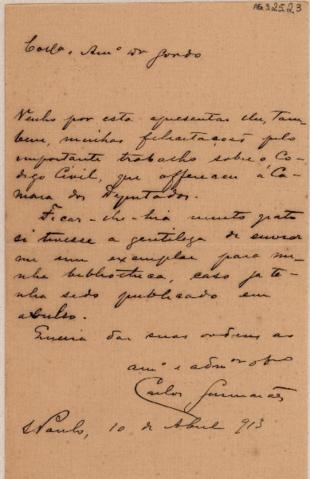 AG 32523
Coll. e Am.º Dr Gordo
Venho por esta apresentar-lhe, tam-
bem, minhas felicitações pelo
importante trabalho sobre o Co-
digo Civil, que offereceu á Ca-
mara dos Deputados.
Ficar-lhe-hia muito grato
si tivesse a gentileza de enviar
me um exemplar para mi-
nha bibliotheca, caso ja te-
nha sido publicado em
avulso.
das suas ordens ao
am.º e adm.or
Carlos Guimarães
S. Paulo, 10 de Abril 913